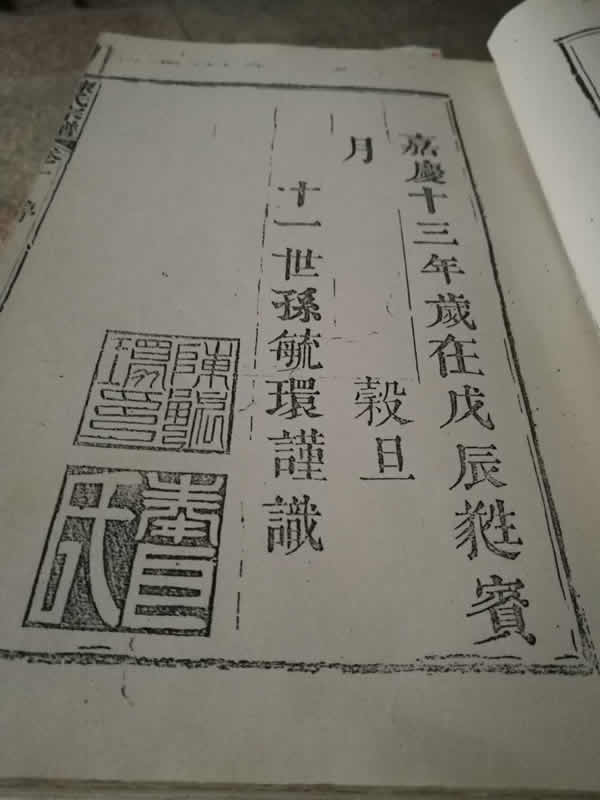 嘉慶十三年歲在戊辰蕤賓
月 穀旦
十一世孫毓環謹識
陳毓環印